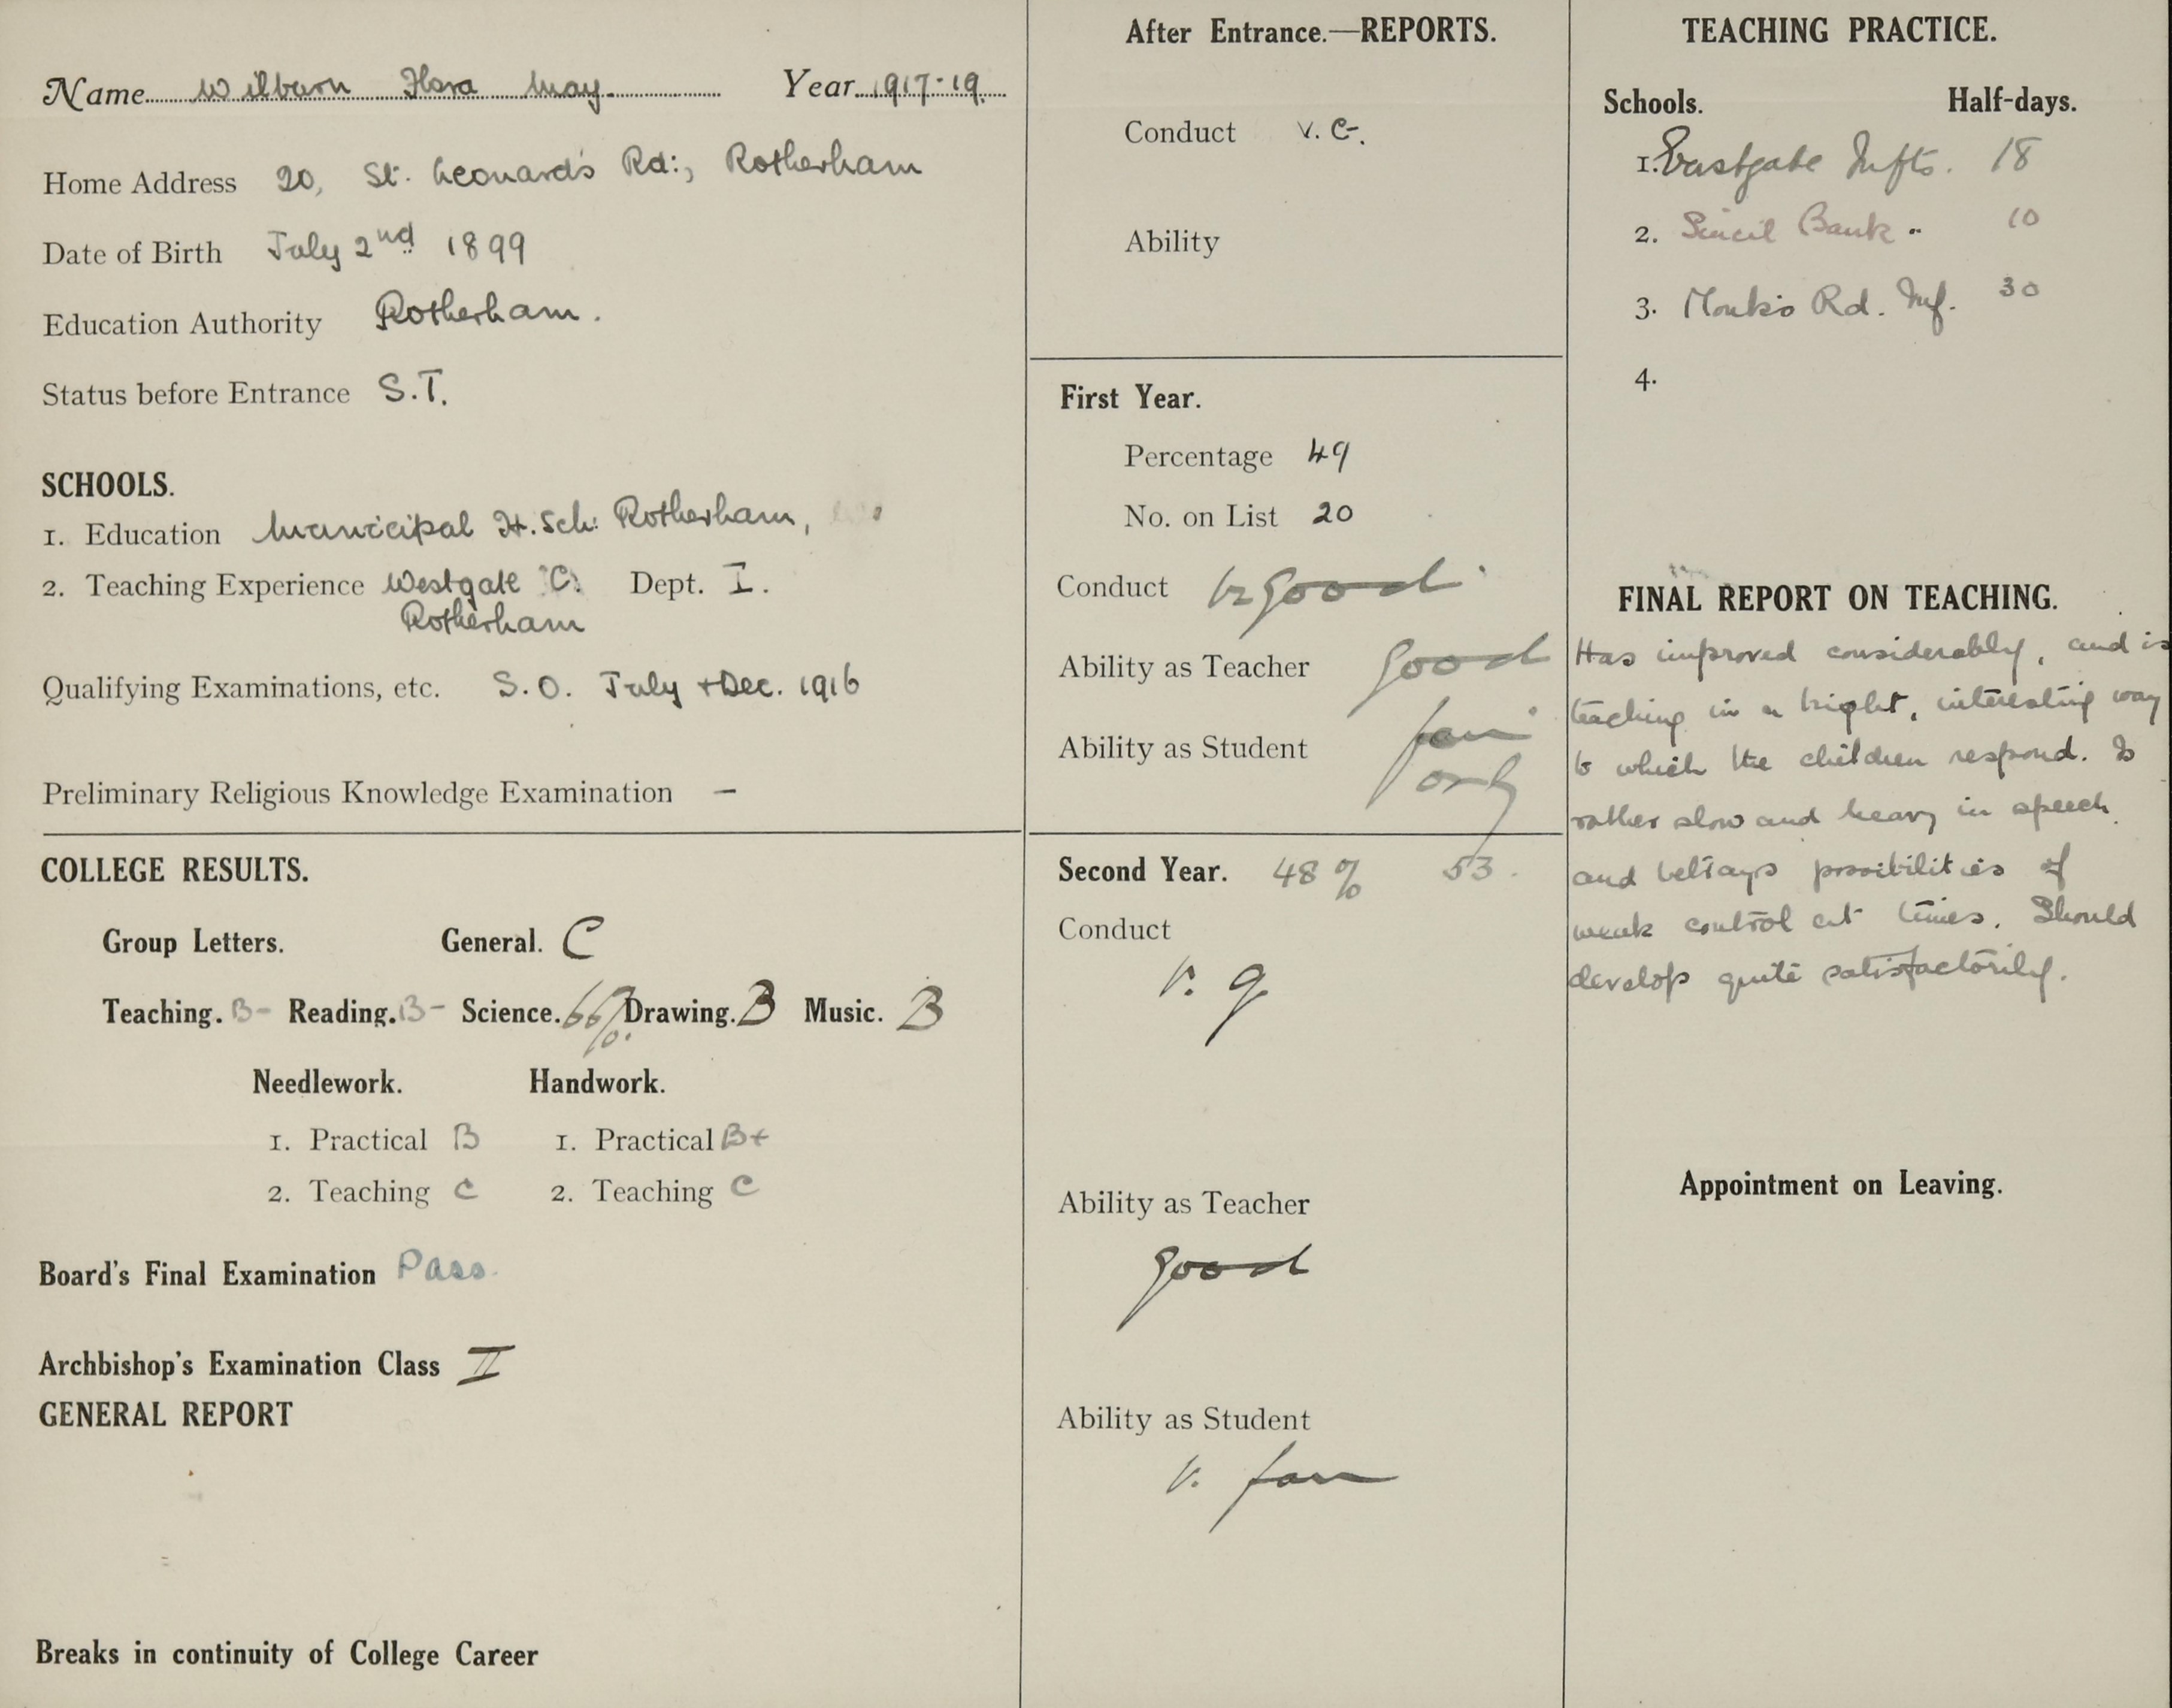 Name Wilburn Flora May. Year 1917-19.
Home Address 20, St. Leonard's Rd:, Rotherham
Date of Birth July 2nd 1899
Education Authority Rotherham.
Status before Entrance S.T.
SCHOOLS.
1. Education Municipal H. Sch: Rotherham,
2. Teaching Experience Westgate C. Dept. I.
Rotherham
Qualifying Examinations, etc. S.O. July + Dec. 1916
Preliminary Religious Knowledge Examination –
COLLEGE RESULTS.
Group Letters. General. C
Teaching. B- Reading. B- Science. 66%. Drawing. B Music. B
Needlework. Handwork.
1. Practical B 1. Practical B+
2. Teaching C 2. Teaching C
Board's Final Examination Pass.
Archbishop's Examination Class II
GENERAL REPORT
Breaks in continuity of College Career
After Entrance.—REPORTS.
Conduct V. G.
Ability
First Year.
Percentage 49
No. on List 20
Conduct V. good.
Ability as Teacher good
Ability as Student fair
only
Second Year. 48% 53.
Conduct
V. g
Ability as Teacher
good
Ability as Student
V. fair
TEACHING PRACTICE.
Schools. Half-days.
1. Eastgate Infts. 18
2. Sincil Bank " 10
3. Monks Rd. Inf. 30
4.
FINAL REPORT ON TEACHING.
Has improved considerably, and is
teaching in a bright, interesting way
to which the children respond. Is
rather slow and heavy in speech
and betrays possibilities of
weak control at times. Should
develop quite satisfactorily.
Appointment on Leaving.